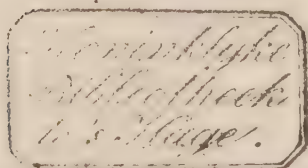 Koninklyke
Bibliotheek
in 's Hage.